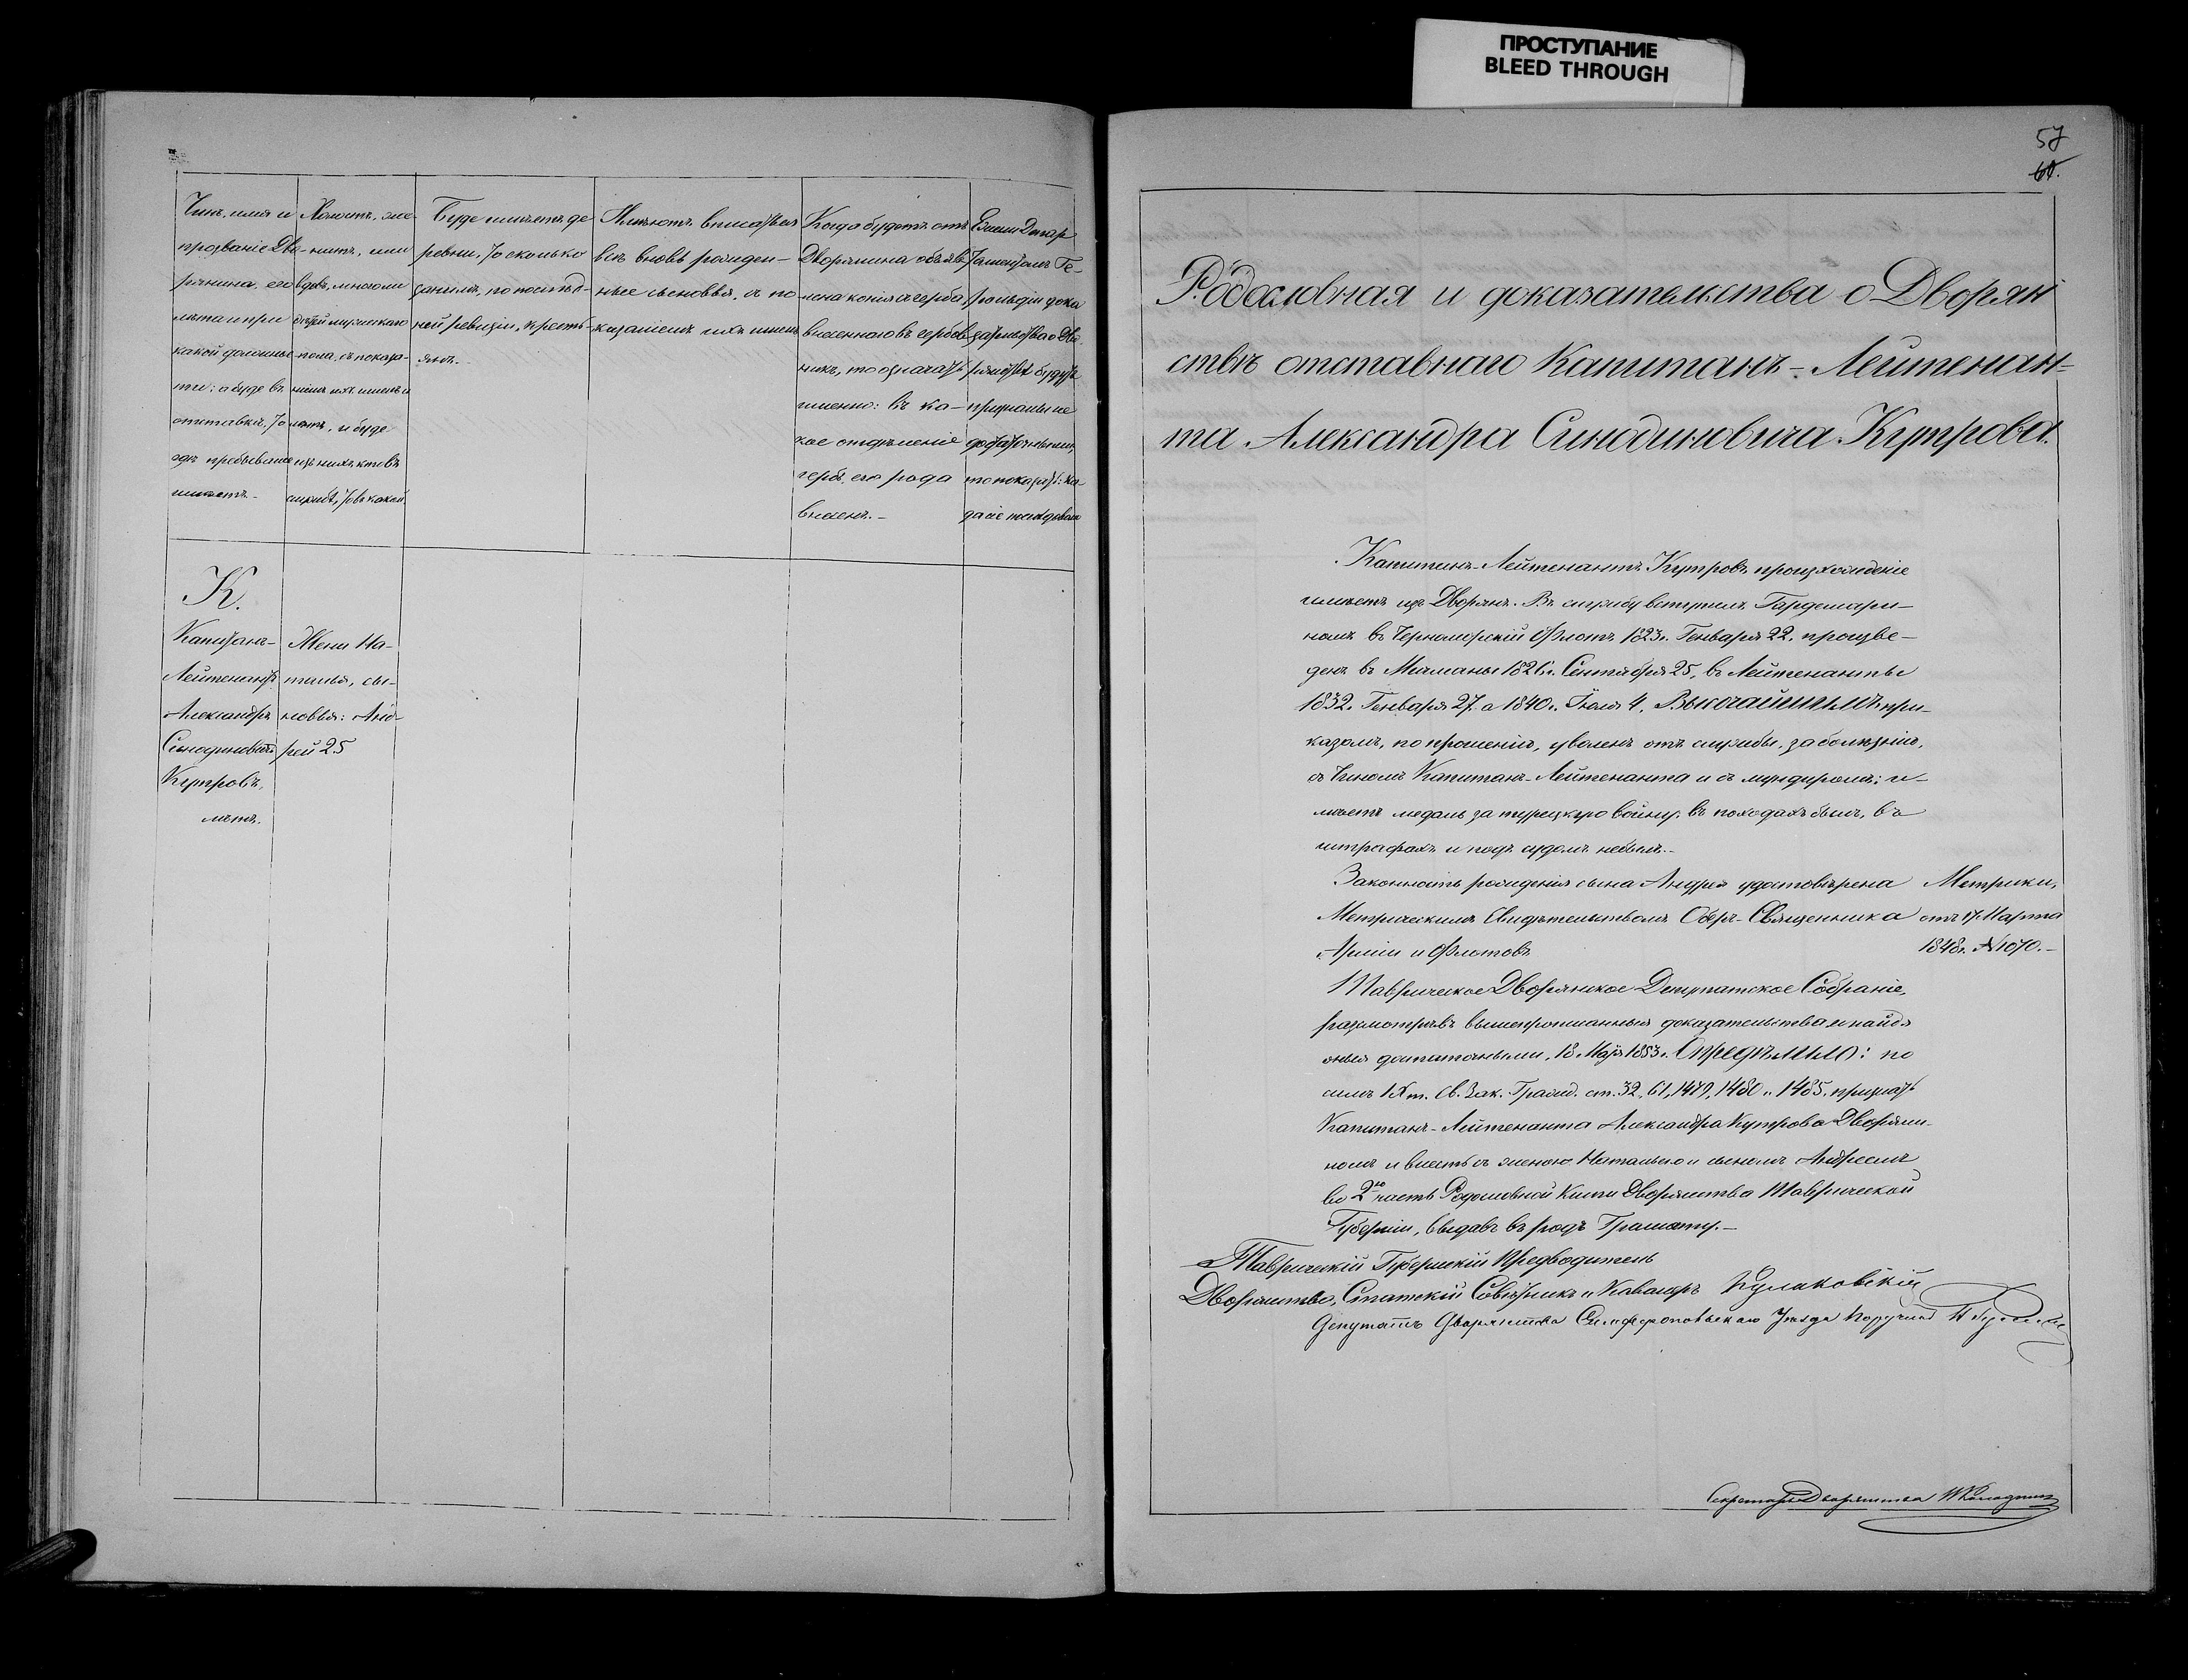 ПРОСТУПАНИЕ
BLEED THROUGH
Чинъ, имя и
прозваніе Дво-
рянина, его
лѣта и при
какой должнос-
ти: а буде въ
отставкѣ, то
гдѣ пребываніе
имѣетъ.-
Холостъ, же-
натъ, или
вдовъ, много ли
дѣтей мужескаго
пола, съ показа-
ніемъ ихъ именъ и
лѣтъ, и буде
изъ нихъ кто въ
службѣ, то въ какой
Буде имѣетъ де-
ревни, то сколько
за нимъ, по послѣд-
ней ревизіи, кресть-
янъ.-
Имѣютъ вписаться
всѣ вновь рожден-
ные сыновья, съ по-
казаніемъ ихъ именъ
Когда будетъ отъ
Дворянина объяв-
лена копія съ герба,
внесеннаго въ гербов-
никъ, то означать
именно: въ ка-
кое отдѣленіе
гербъ его рода
внесенъ.-
Ежели Депар
таментомъ Ге-
рольдіи дока
зательства о Дво-
рянствѣ будутъ
признаны не
достаточными,
то показать: ког-
да сіе послѣдовало
К.
Капитанъ-
Лейтенантъ
Александръ
Синодиновичъ
Кутровъ,
лѣтъ.
Жена На-
талья, сы-
новья: Анд-
рей 25
57
60.
Родословная и доказательства о Дворян
ствѣ отставнаго Капитанъ-Лейтенан-
та Александра Синодиновича Кутрова.
Капитанъ-Лейтенантъ Кутровъ, происхожденіе
имѣетъ изъ Дворянъ. Въ службу вступилъ Гардемари-
номъ въ Черноморскій Флотъ 1823г. Генваря 22. произве-
денъ въ Мичманы 1826г. Сентября 25, въ Лейтенанты
1832г. Генваря 27. а 1840г. Іюля 4, Высочайшимъ при-
казомъ, по прошенію, уволенъ отъ службы, за болѣзнію,
съ Чиномъ Капитанъ-Лейтенанта и съ мундиромъ; и-
мѣетъ медаль за турецкую войну; въ походахъ былъ, въ
штрафахъ и подъ судомъ небылъ.-
Законность рожденія сына Андрея удостовѣрена
Метрическимъ Свидѣтельствомъ Оберъ-Священника
Арміи и Флотовъ
Метрики,
отъ 17 Марта
1848г. №1070.-
Таврическое Дворянское Депутатское Собраніе,
разсмотрѣвъ вышепрописанныя доказательства и найдя
оныя достаточными, 18 Мая 1853г. Опредѣлило: по
силѣ IX т. Св. Зак. Гражд. ст. 32, 61, 1479, 1480 и 1485, признать
Капитанъ-Лейтенанта Александра Кутрова Дворяни-
номъ и внесть съ женою Натальею и сыномъ Андреемъ
во 2ю часть Родословной Книги Дворянства Таврической
Губерніи, выдавъ въ родъ Грамоту.-
Таврическій Губернскій Предводитель
Дворянства, Статскій Совѣтникъ и Кавалеръ Кулаковскій
Депутатъ Дворянства Симферопольскаго Уѣзда Поручикъ
Секретарь Дворянства